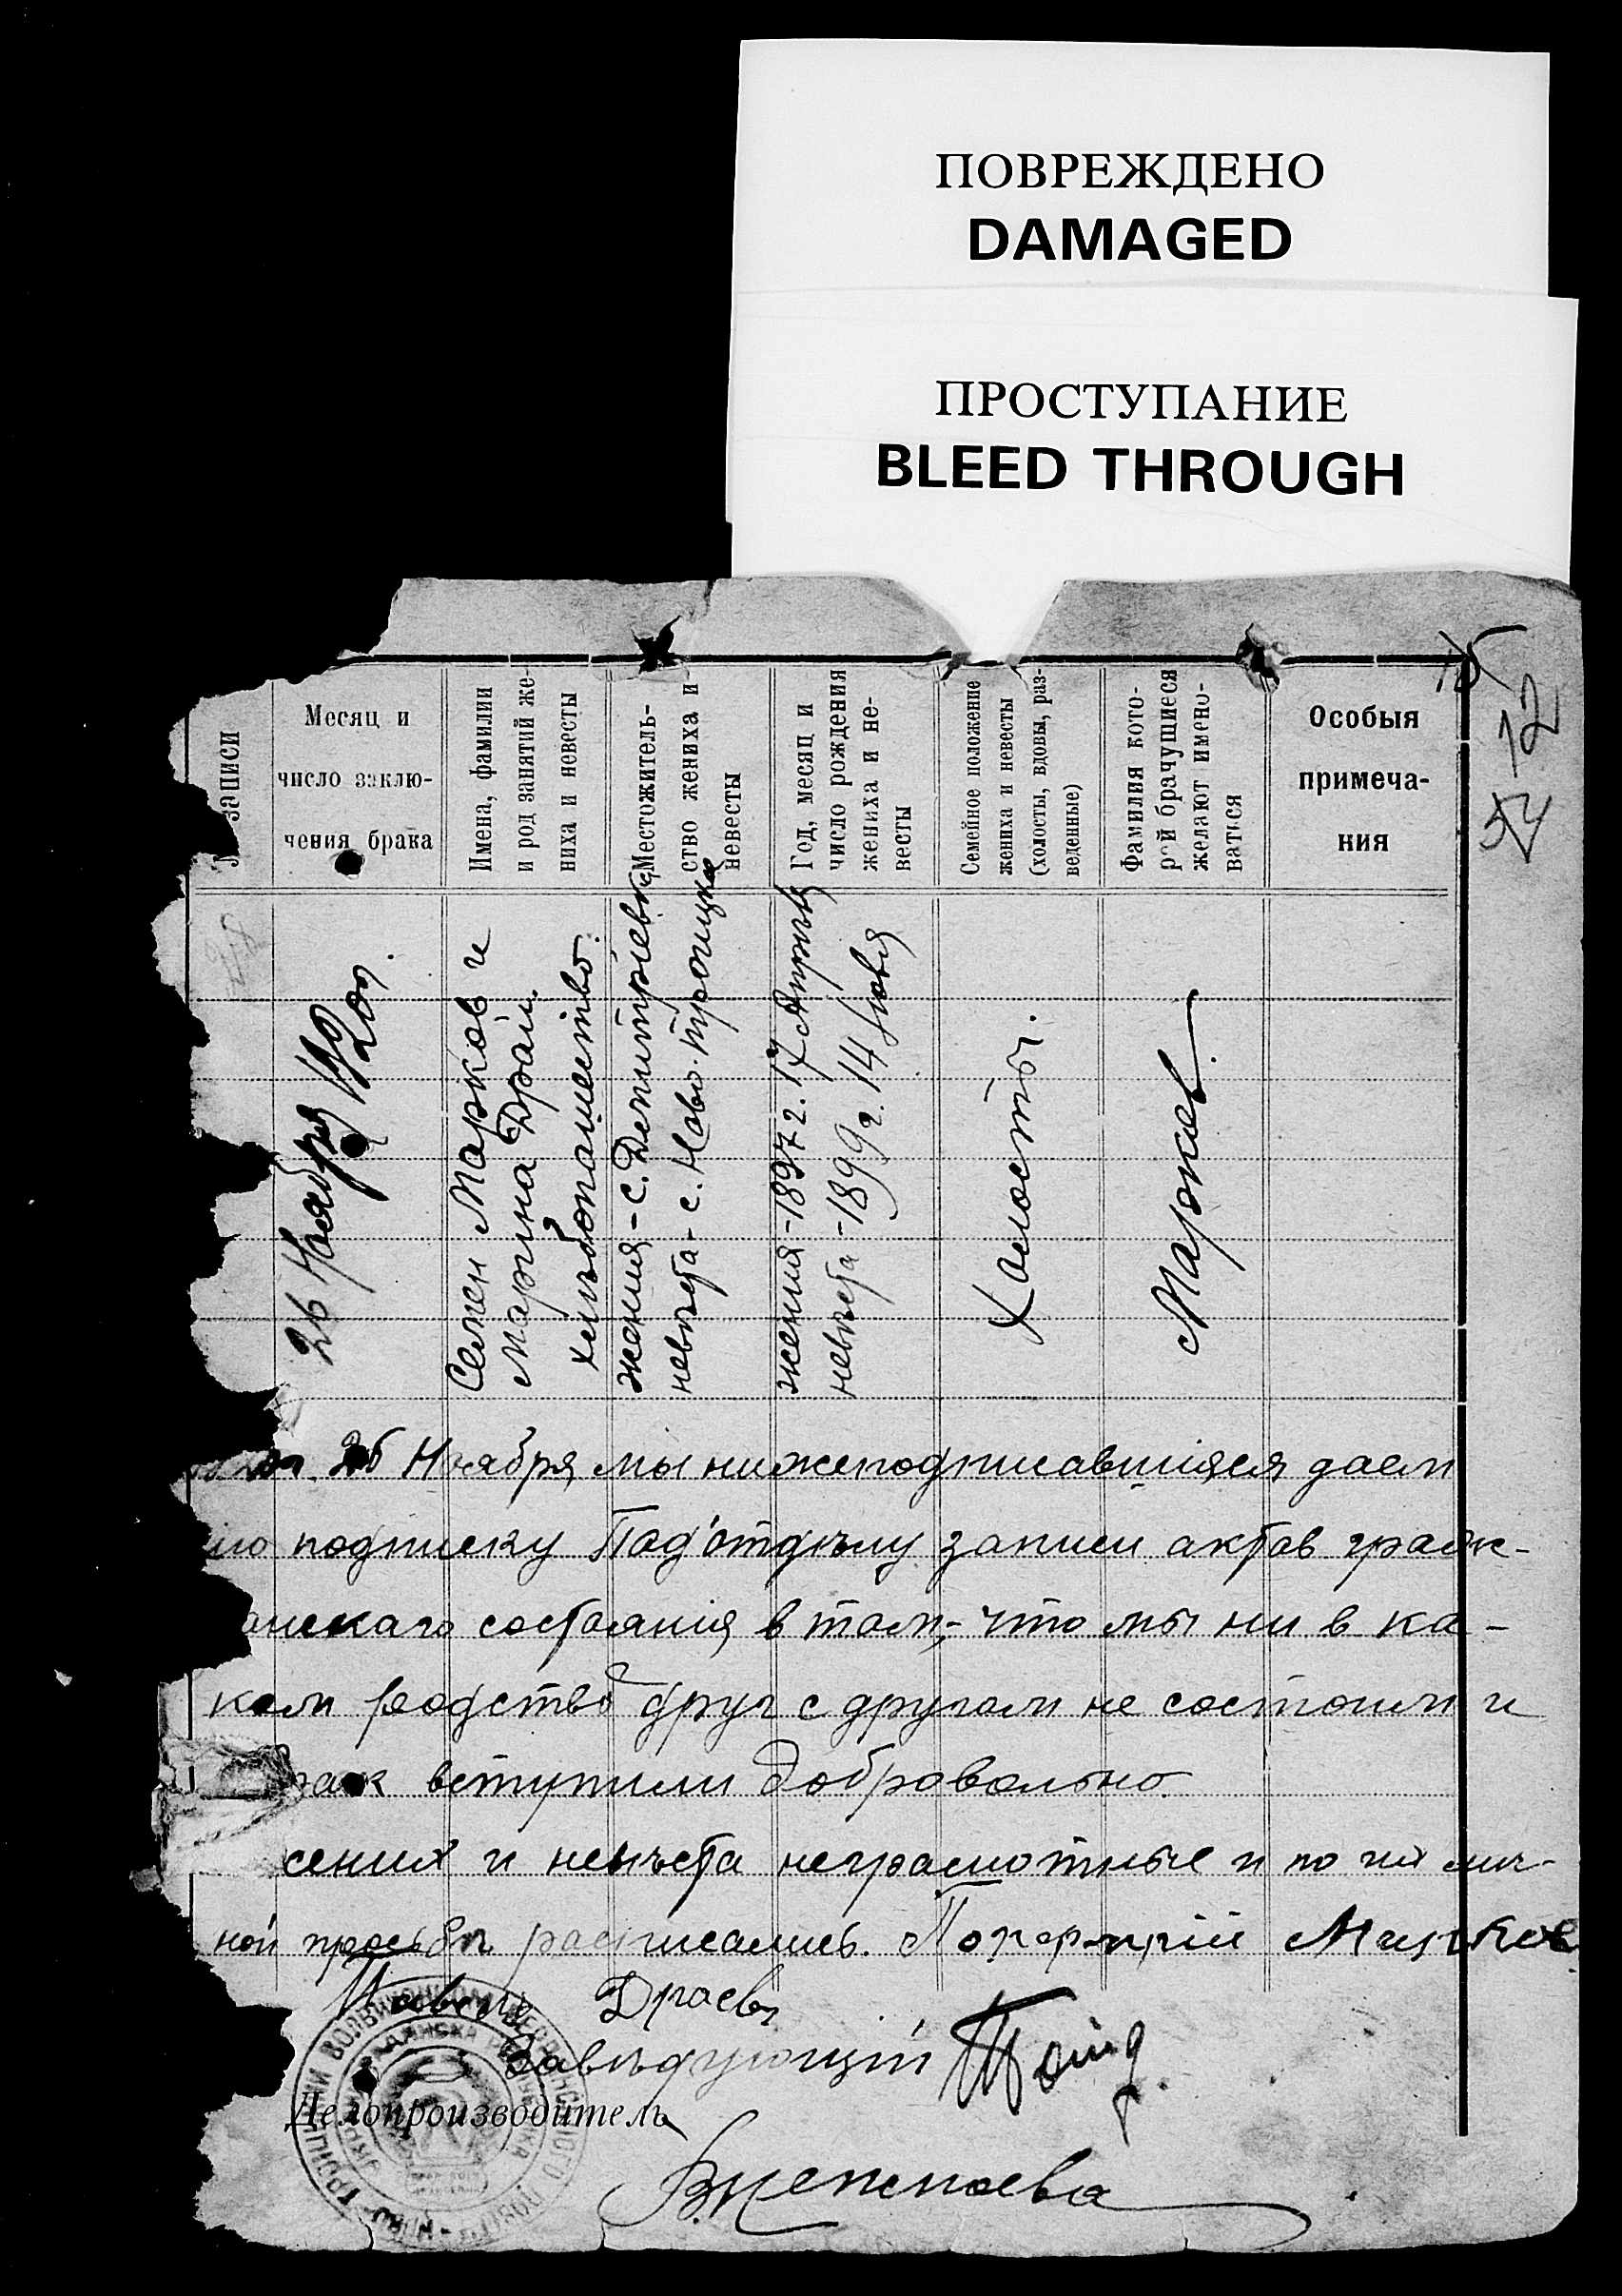 ПОВРЕЖДЕНО
DAMAGED
ПРОСТУПАНИЕ
BLEED THROUGH
12
записи
Месяц и
число заклю-
чения брака
Имена, фамилии
и род занятий же-
ниха и невесты
Местожитель-
ство жениха и
невесты
Год, месяц и
число рождения
жениха и не-
весты
Семейное положение
жениха и невесты
(холосты, вдовы, раз-
веденные)
Фамилия кото-
рой брачущиеся
желают имено-
ваться
Особыя
примеча-
ния
26 Ноября 1920г.
Семен Марков и
Марина Драй.
хлѣбопашество.
жених - с. Дмитріевка
невѣста - с. Ново-троицка
жених - 1897 г. 17 Апрѣля
невѣста - 1899 г. 14 Іюля
Холосты.
Марков
26 Ноября мы нижеподписавшіяся даем
подписку Под'отдѣлу записи актов граж-
данскаго состоянія в том, - что мы ни в ка-
ком родствѣ друг с другом не состоим и
брак вступили добровольно.
жених и невѣста неграмотные и по их лич-
ной просьбѣ расписались. Порфирій Марков
Драевъ
Завѣдующій
Делопроизводитель